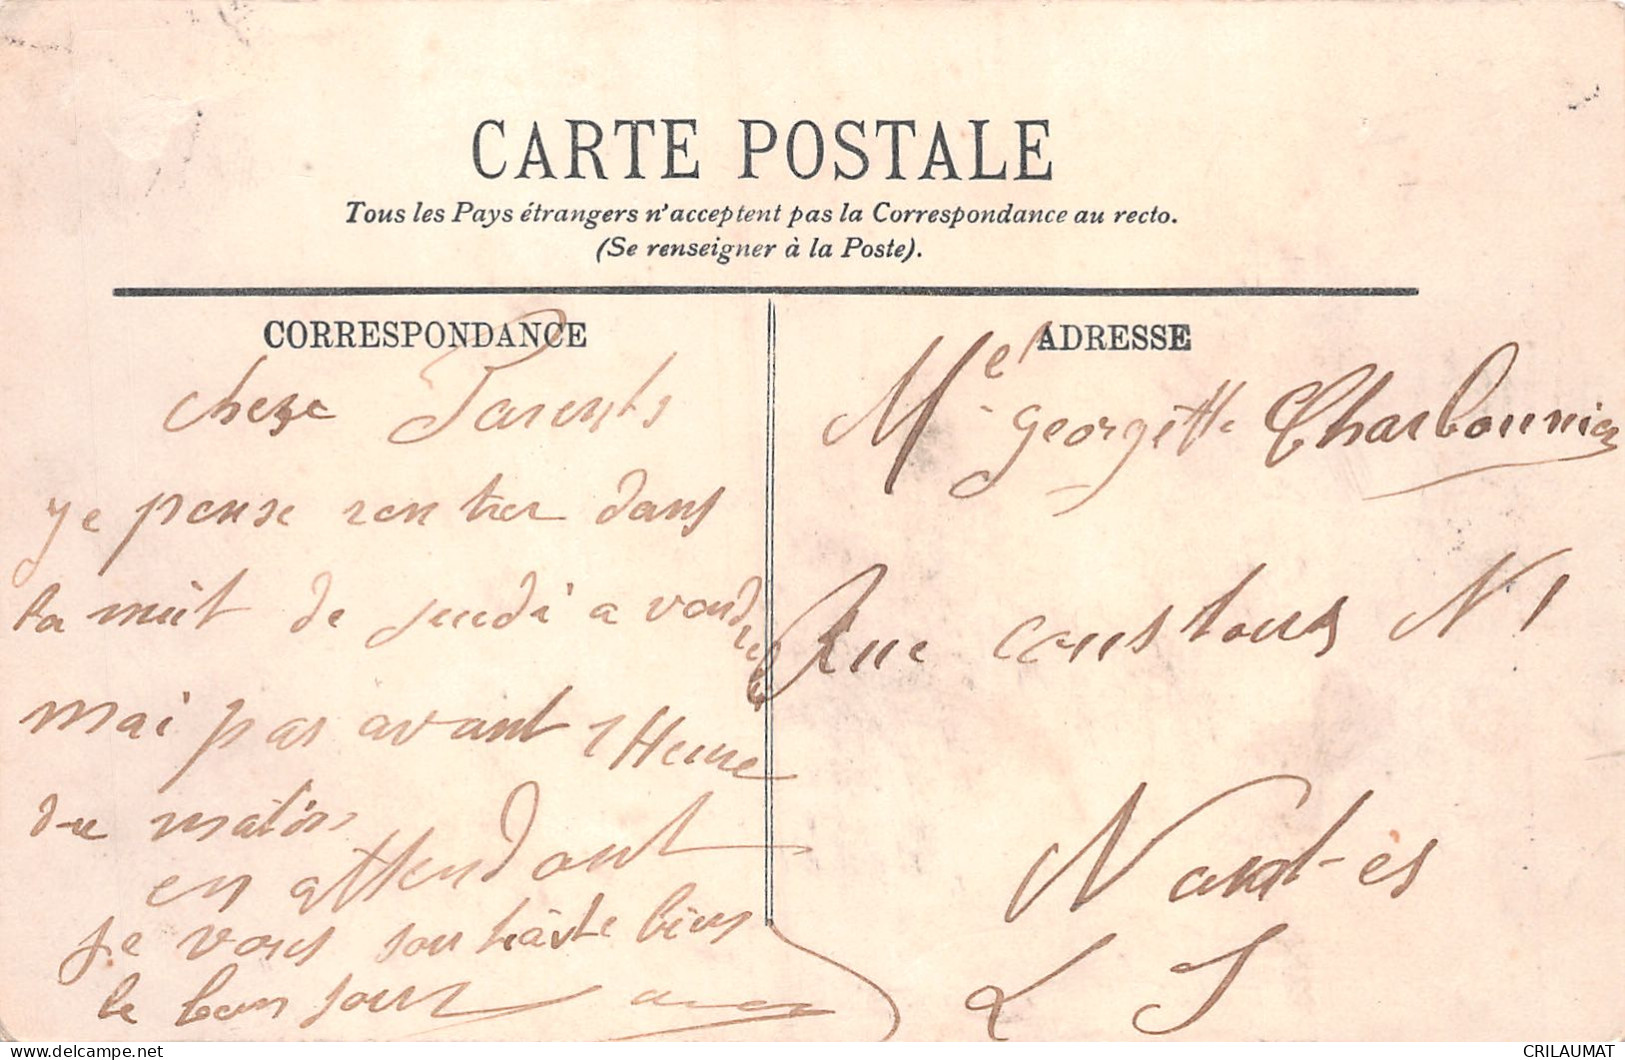 CARTE POSTALE
Tous les Pays étrangers n'acceptent pas la Correspondance au recto.
(Se renseigner à la Poste).
CORRESPONDANCE
chere Parents
je pense rentrer dans
la nuit de jeudi a vendredi
mai pas avant 1 Heure
du matin
en attendant
je vous souhaite bien
le bonjour
ADRESSE
Mel georgette Charbonnier
Rue coustous N 1
Nantes
L I
CRILAUMAT